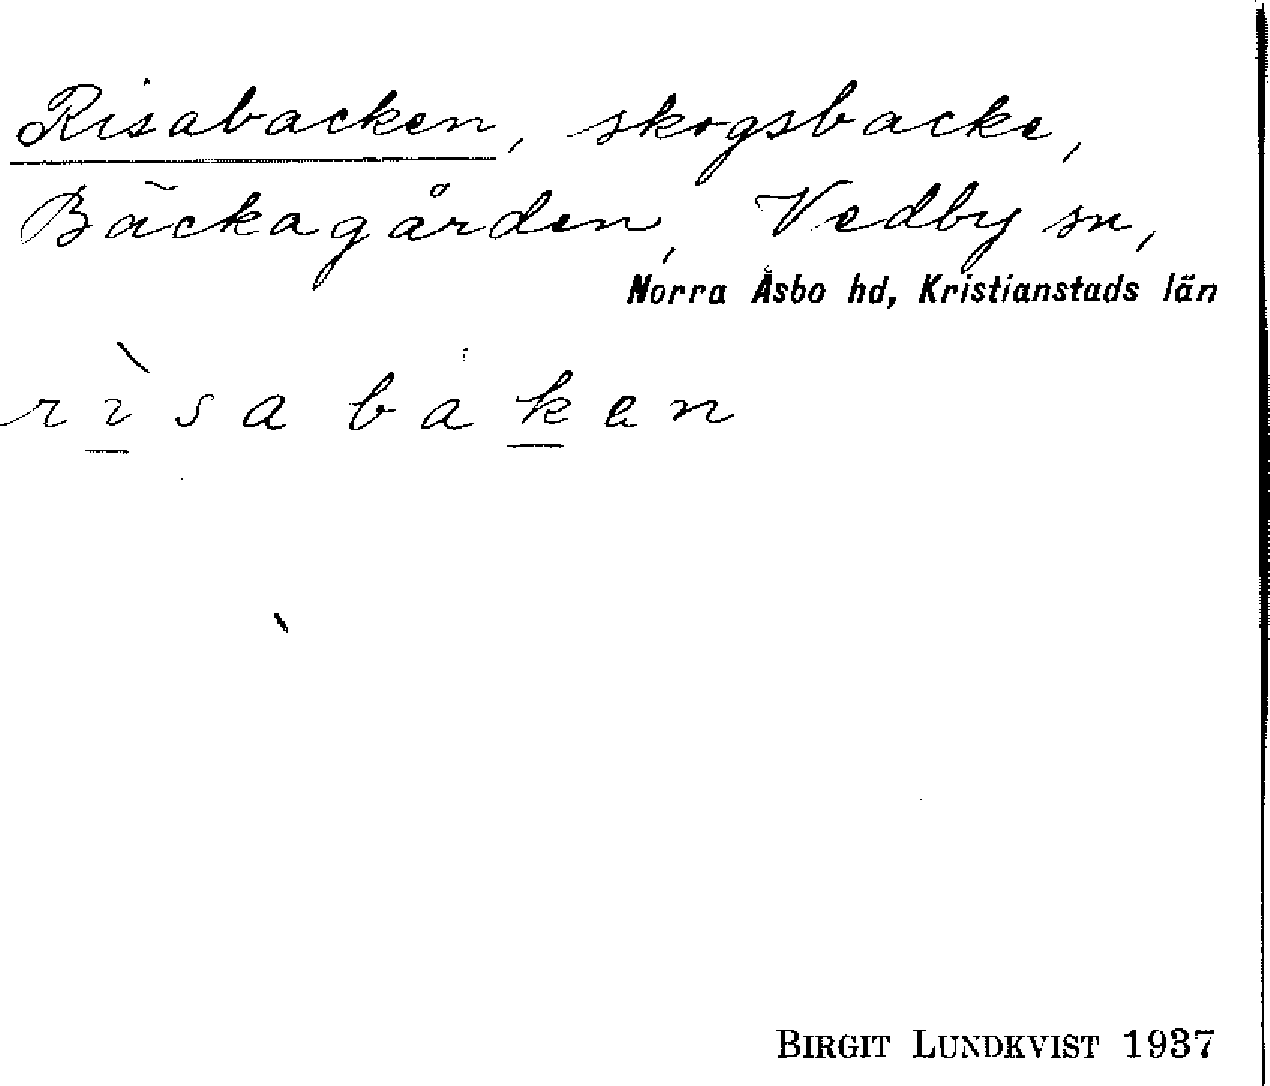 Risabacken, skogsbacke,
Bäckagården, Vedby sn,
Norra Åsbo hd, Kristianstads län
rìsabaken
BIRGIT LUNDKVIST 1937